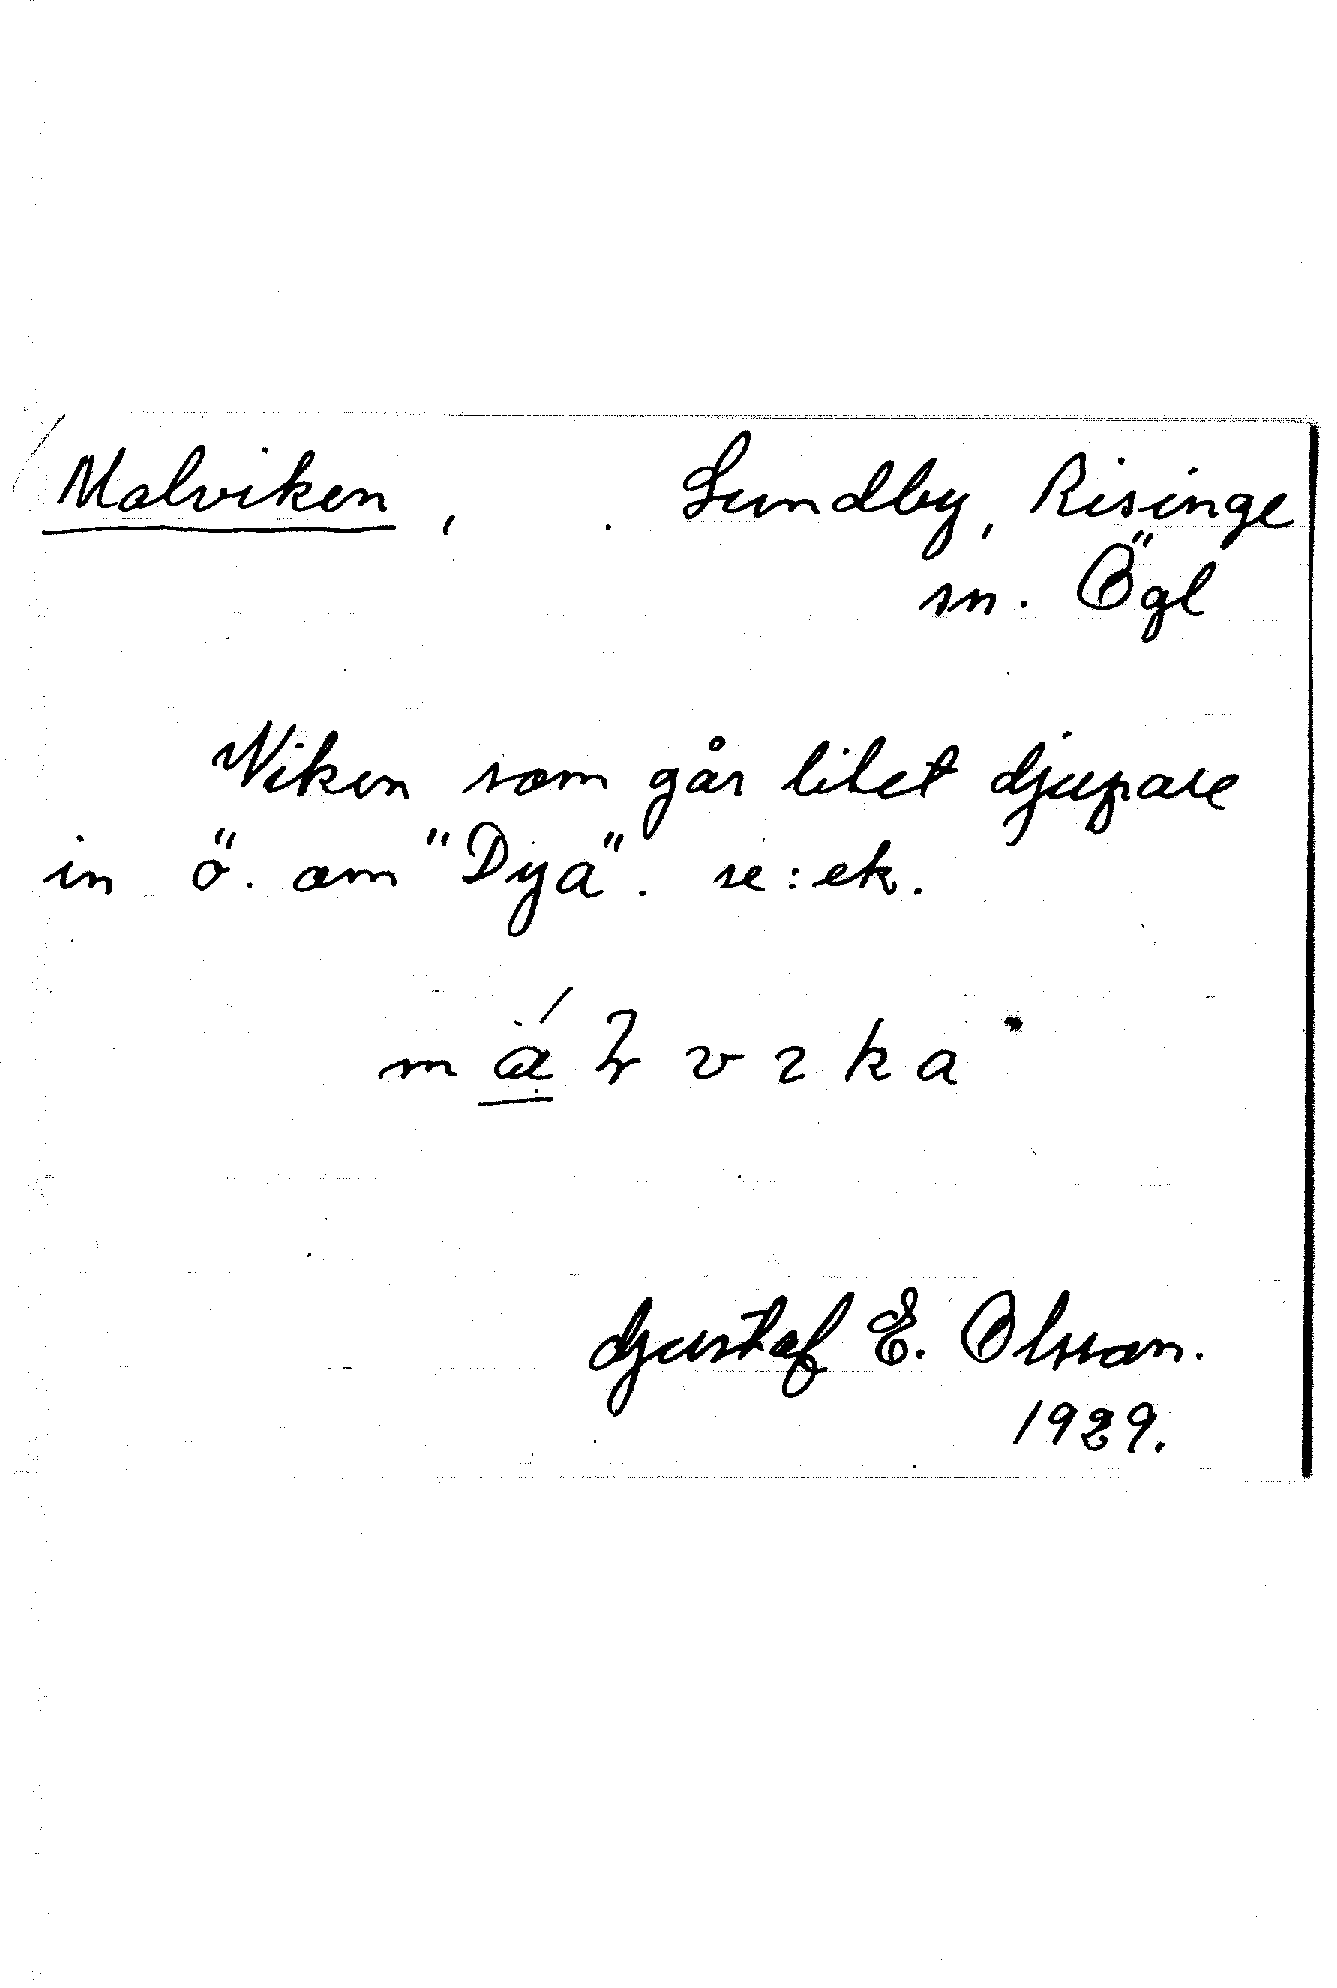 Malviken, Sundby, Risinge
sn. Ögl
Viken som går litet djupare
in ö. om "Dya". se: ek.
Gustaf E. Olsson.
1929.